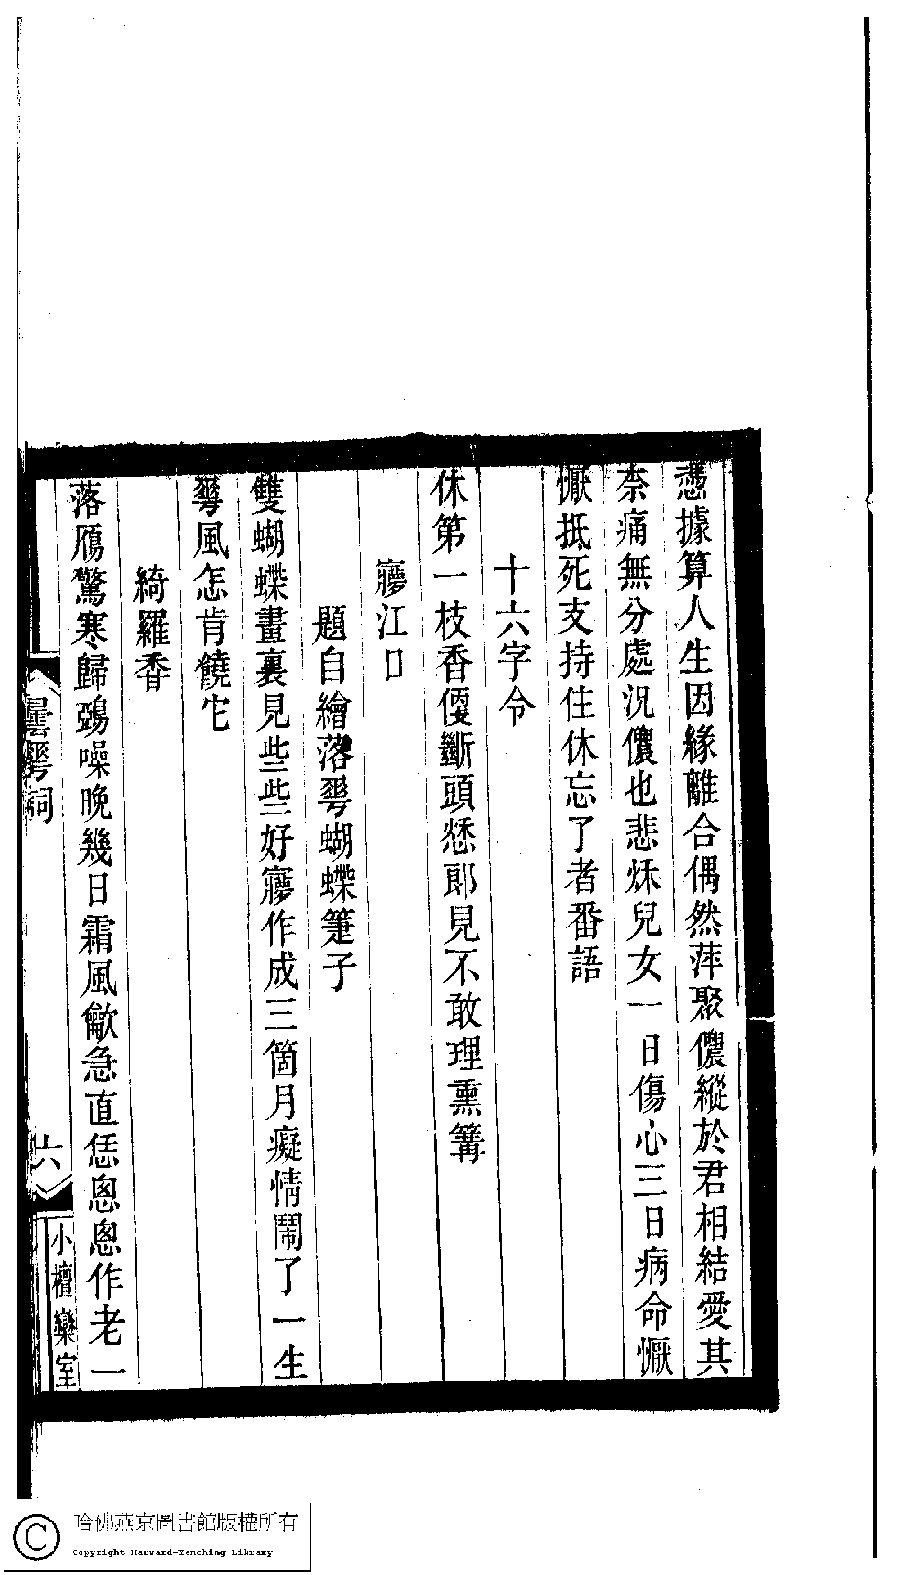 憑據算人生因緣離合偶然萍聚儂縱於君相結愛其
柰痛無分處況儂也悲秌兒女一日傷心三日病命懨
懨抵死支持住休忘了者番語
十六字令
休第一枝香偄斷頭愁郎見不敢理熏篝
㝱江口
題自繪落㼆蝴蝶箑子
雙蝴蝶畫裏見些些好㝱作成三箇月癡情鬧了一生
風怎肯饒它
綺羅香
落鴈驚寒歸鵶噪晚幾日霜風歙急直恁悤悤作老一
曇 詞
六
小檀欒室
哈佛燕京圖書館版權所有
Copyright Harvard-Yenching Library